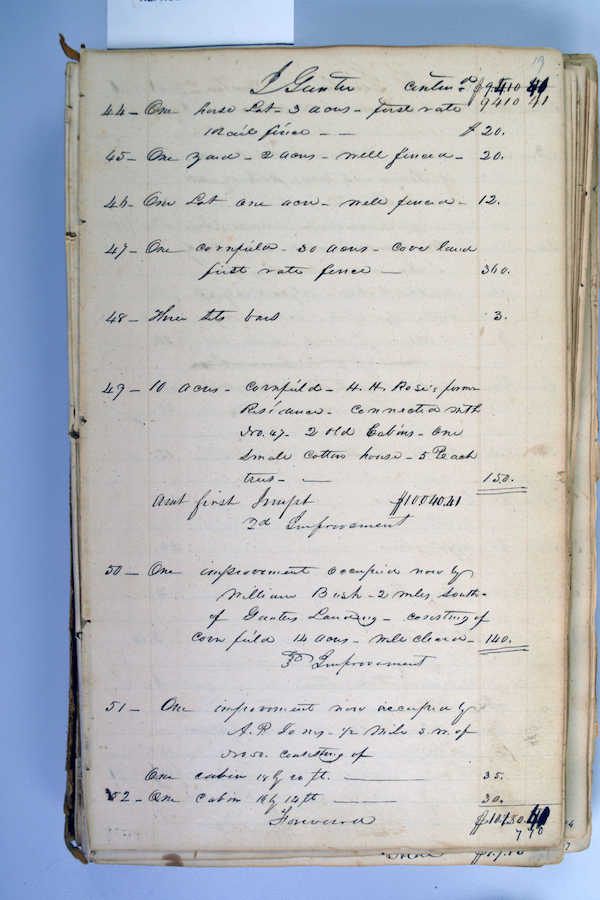 19
J Gunter contin'd $9410 41
9410 41
44 - One horse Lot - 3 acres - first rate
rail fence - - $20.
45 - One yard - 2 acres - well fenced - 20.
46 - One Lot one acre - well fenced - 12.
47 - One cornfield - 30 acres - cove land
first rate fence - 360.
48 - Three sets bars 3.
49 - 10 acres - cornfield - H. H. Rose's former
Residence - connected with
No. 47 - 2 old Cabins - One
small cotton house - 5 Peach
trees - - 150.
Amt first Impt $10040.41
2d Improvement
50 - One improvement occupied now by
William Bush - 2 miles South -
of Gunters Landing - cosisting of
corn field 14 acres - well cleared - 140.
3d Improvement
51 - One improvement now occupied by
A. R. Jones - 1/2 Mile S. W. of
No 50. consisting of
One cabin 18 by 20 ft. 35.
52 - One cabin 16 by 14 ft 30.
Forward